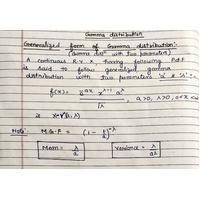 Gamma distribution
Generalized form of Gamma distribution:-
(Gamma distⁿ with two parameters)
A continuous R.V. X having following P.d.f
is said to follow generalized gamma
distribution with two parameters 'a' & 'λ' -
f(x) = e^-ax x^λ-1 a^λ / Γλ , a>0, λ>0, 0<x<
is X~γ(a, λ)
Note: M.G.F = (1 - t/a)^-λ
Mean = λ/a Variance = λ/a²